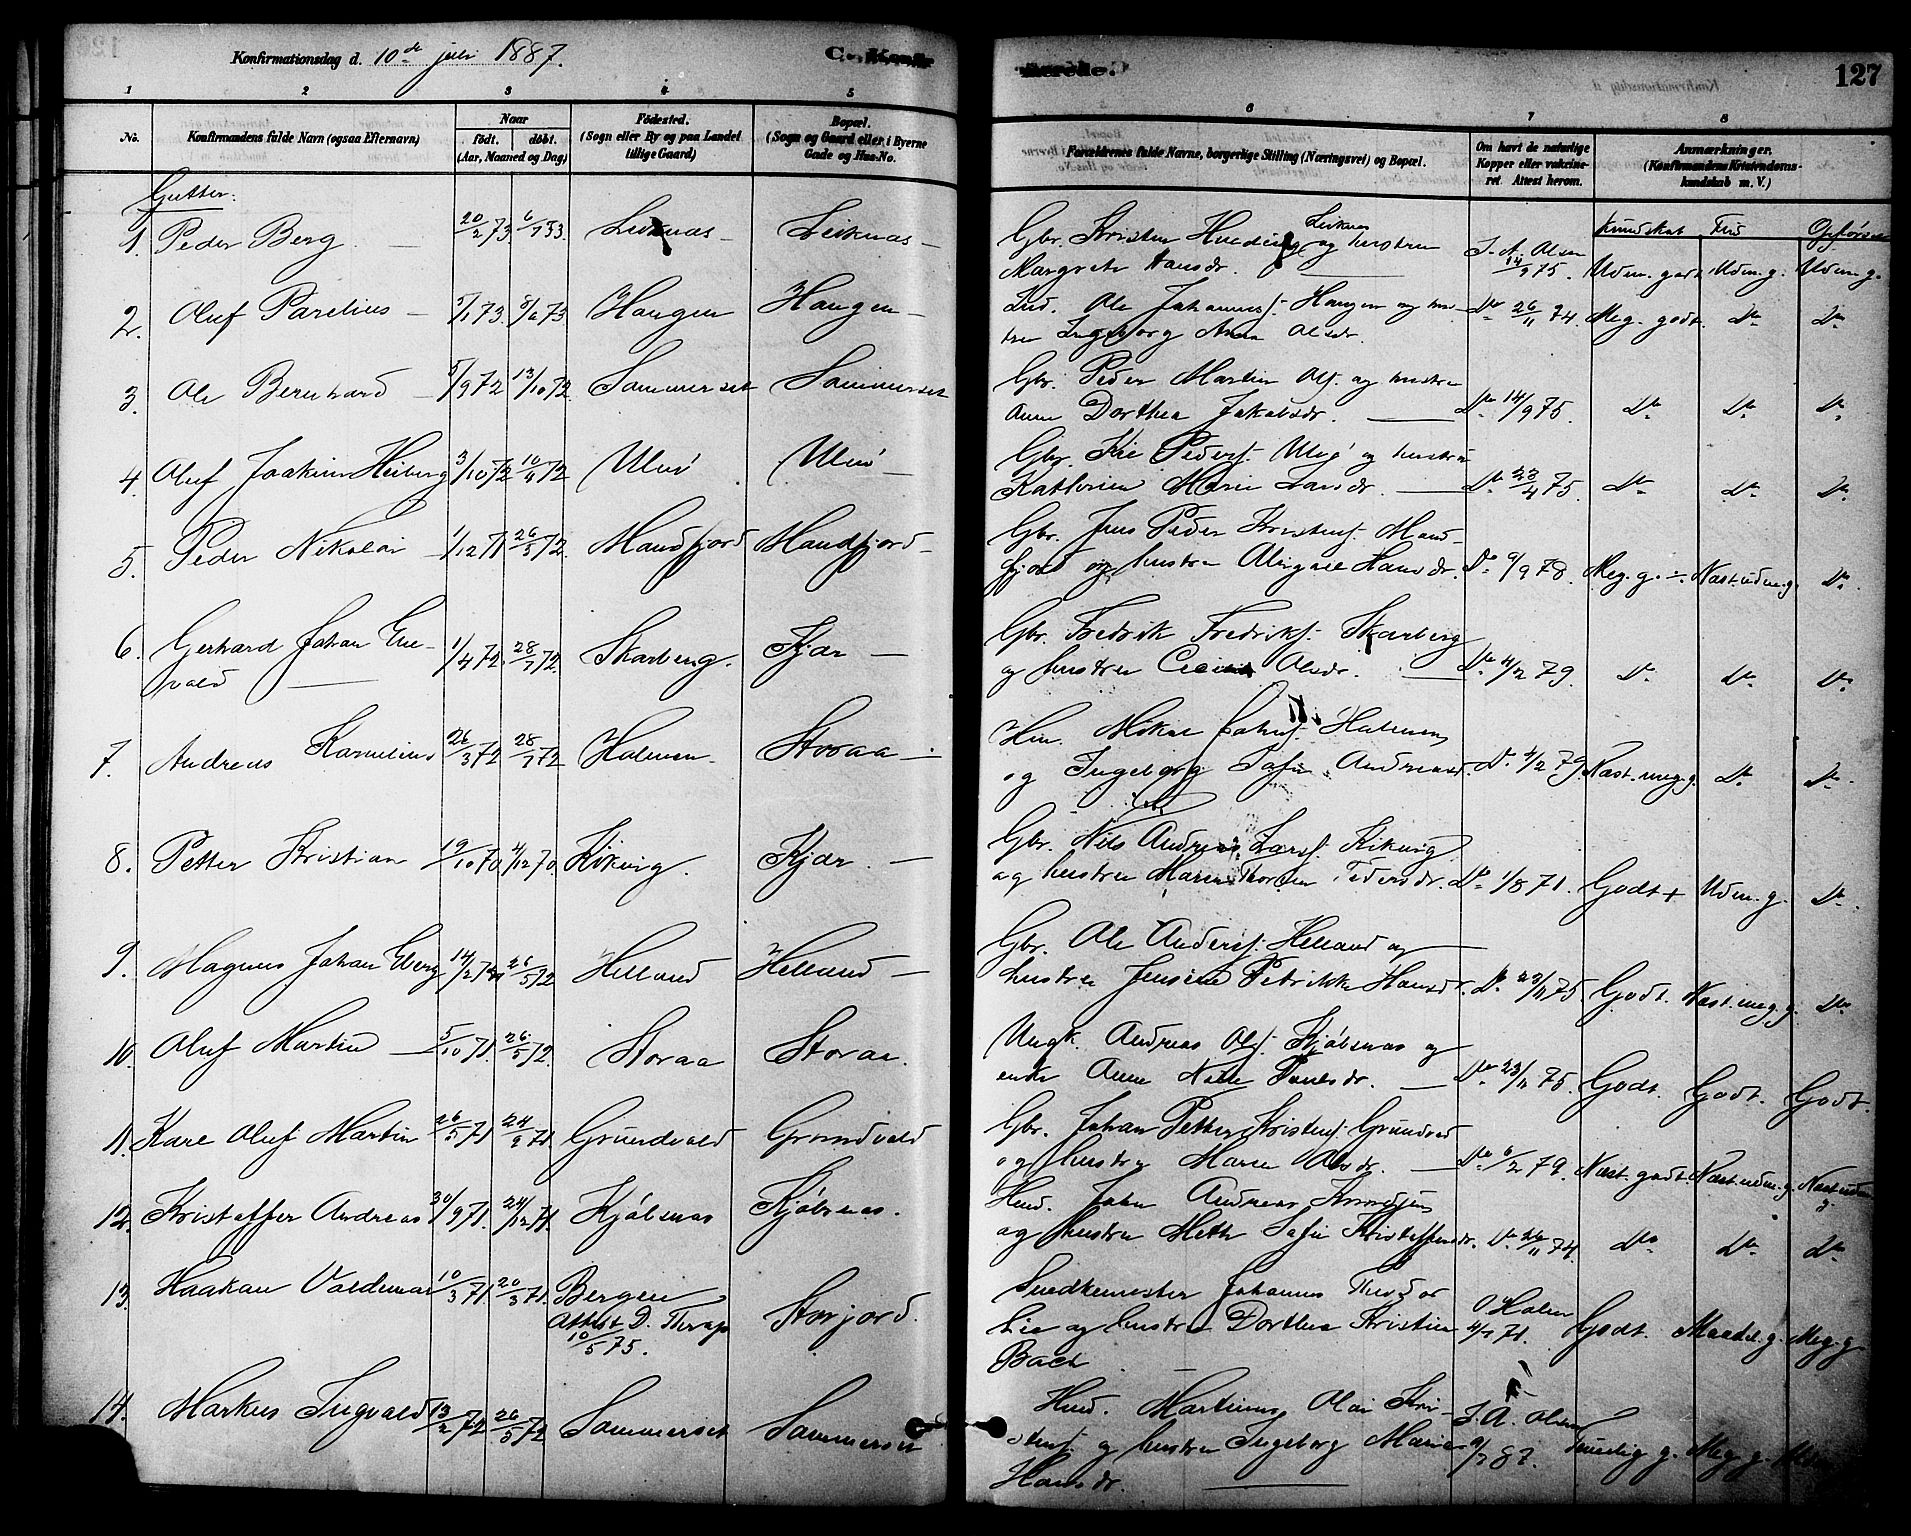 Konfirmationsdag d. 10de juli 1887.
127
1 2 3 4 5 6 7 8
No.
Konfirmandens fulde Navn (ogsaa Efternavn)
Naar
født. døbt.
(Aar, Maaned og Dag)
Fødested.
(Sogn eller By og paa Landet
tillige Gaard)
Bopæl.
(Sogn og Gaard eller i Byerne
Gade og Hus-No.
Forældrenes fulde Navne, borgerlige Stilling (Næringsvei) og Bopæl.
Om havt de naturlige
Kopper eller vakcine-
ret. Attest herom.
Anmærkninger.
(Konfirmandens Kristendoms-
kundskab m. V.)
Gutter:
Kundskab Flid Opførsel
1. Peder Berg 20/2 73 Leiknas Leiknas
Gbr. Kristen og hustru
Margrete Hansdr. J. A. Olsen 14/9 75. Udm. godt Udm. g. Udm. g.
2. Oluf Parelius 8/6 73 Haugen Haugen
Ind. Ole Johanness. Haugen og hu-
stru Ingeborg Anna Olsdr. Do 26/11 74. Meg. godt. Do Do
3. Ole Bernhard 5/9 72 13/10 72 Sommerset Sommerset
Gbr. Peder Martin Ols. og hustru
Anne Dorthea Jakobsdr. Do 14/9 75. Do Do Do
4. Oluf Joakim Heiberg 3/10 72 10/11 72 Ulvø Ulvø
Gbr. Peders. Ulvø og hustru
Kathrine Marie Larsdr. Do 23/4 75. Do Do Do
5. Peder Nikolai 1/12 71 26/5 72 Mandfjord Mandfjord
Gbr. Jens Peder Kristens. Mand-
fjord og hustru Abigael Hansdr. Do 9/9 78. Meg. g. ÷ Næst. udm. g. Do
6. Gerhard Johan Ene-
vold 1/4 72 28/7 72. Skarberg. Kjær
Gbr. Fredrik Fredriks. Skarberg
og hustru Olsdr. Do 4/2 79. Do Do Do
7. Andreas Kornelius 26/3 72 28/7 72 Holmen Storaa
Johns. Holmen
og Ingeborg Sofie Andreasd. Do 4/2 79. Næst. meg. g. Do Do
8. Petter Kristian 19/10 70 4/12 70 Kikvig. Kjær.
Gbr. Nils Andreas Lars. Kikvig
og hustru Maren Pedersdr. Do 1/8 71. Godt + Udm. g. Do
9. Magnus Johan Eberg 14/2 72 26/5 72 Helland Helland
Gbr. Ole Anders. Helland og
hustru Jensine Petrikke Hansdr. Do 23/11 75 Godt. Næst. meg. g. Do
10. Oluf Martin 5/10 71. 26/5 72. Storaa Storaa.
Ungk. Andreas Ols. Kjøbsnas og
enke Anne Paulsdr. Do 23/11 75 Godt. Godt. Godt.
11. Karl Oluf Martin 26/5 71 24/9 71. Grundvald Grundvald
Gbr. Johan Petter Kristens. Grundvad
og hustru Maren Olsdr. Do 6/2 79. Næst. godt Næst. udm. g. Næst udm. g.
12. Kristoffer Andreas 30/9 71. 24/12 71. Kjøbsnas Kjøbsnas.
Hmd. John Andreas
og hustru Meth Sofie Kristoffersdr. Do 26/11 74. Do Do Do
13. Haakon Valdemar 10/3 71. 20/3 71. Bergen
Attest D. Thrap
10/5 75. Storjord.
Smedkemester Johannes Theodor
Lie og hustru Dorthea Kristine
Bach O Holm 4/7 71. Godt. Maadel. g. Meg. g.
14. Markus Ingvald 13/2 72 26/5 72 Sommerset Sommerset
Hmd. Martinus Olai Kri-
stens. og hustru Ingeborg Marie
Hansdr. J. A. Olsen Temmelig g. Meg g.